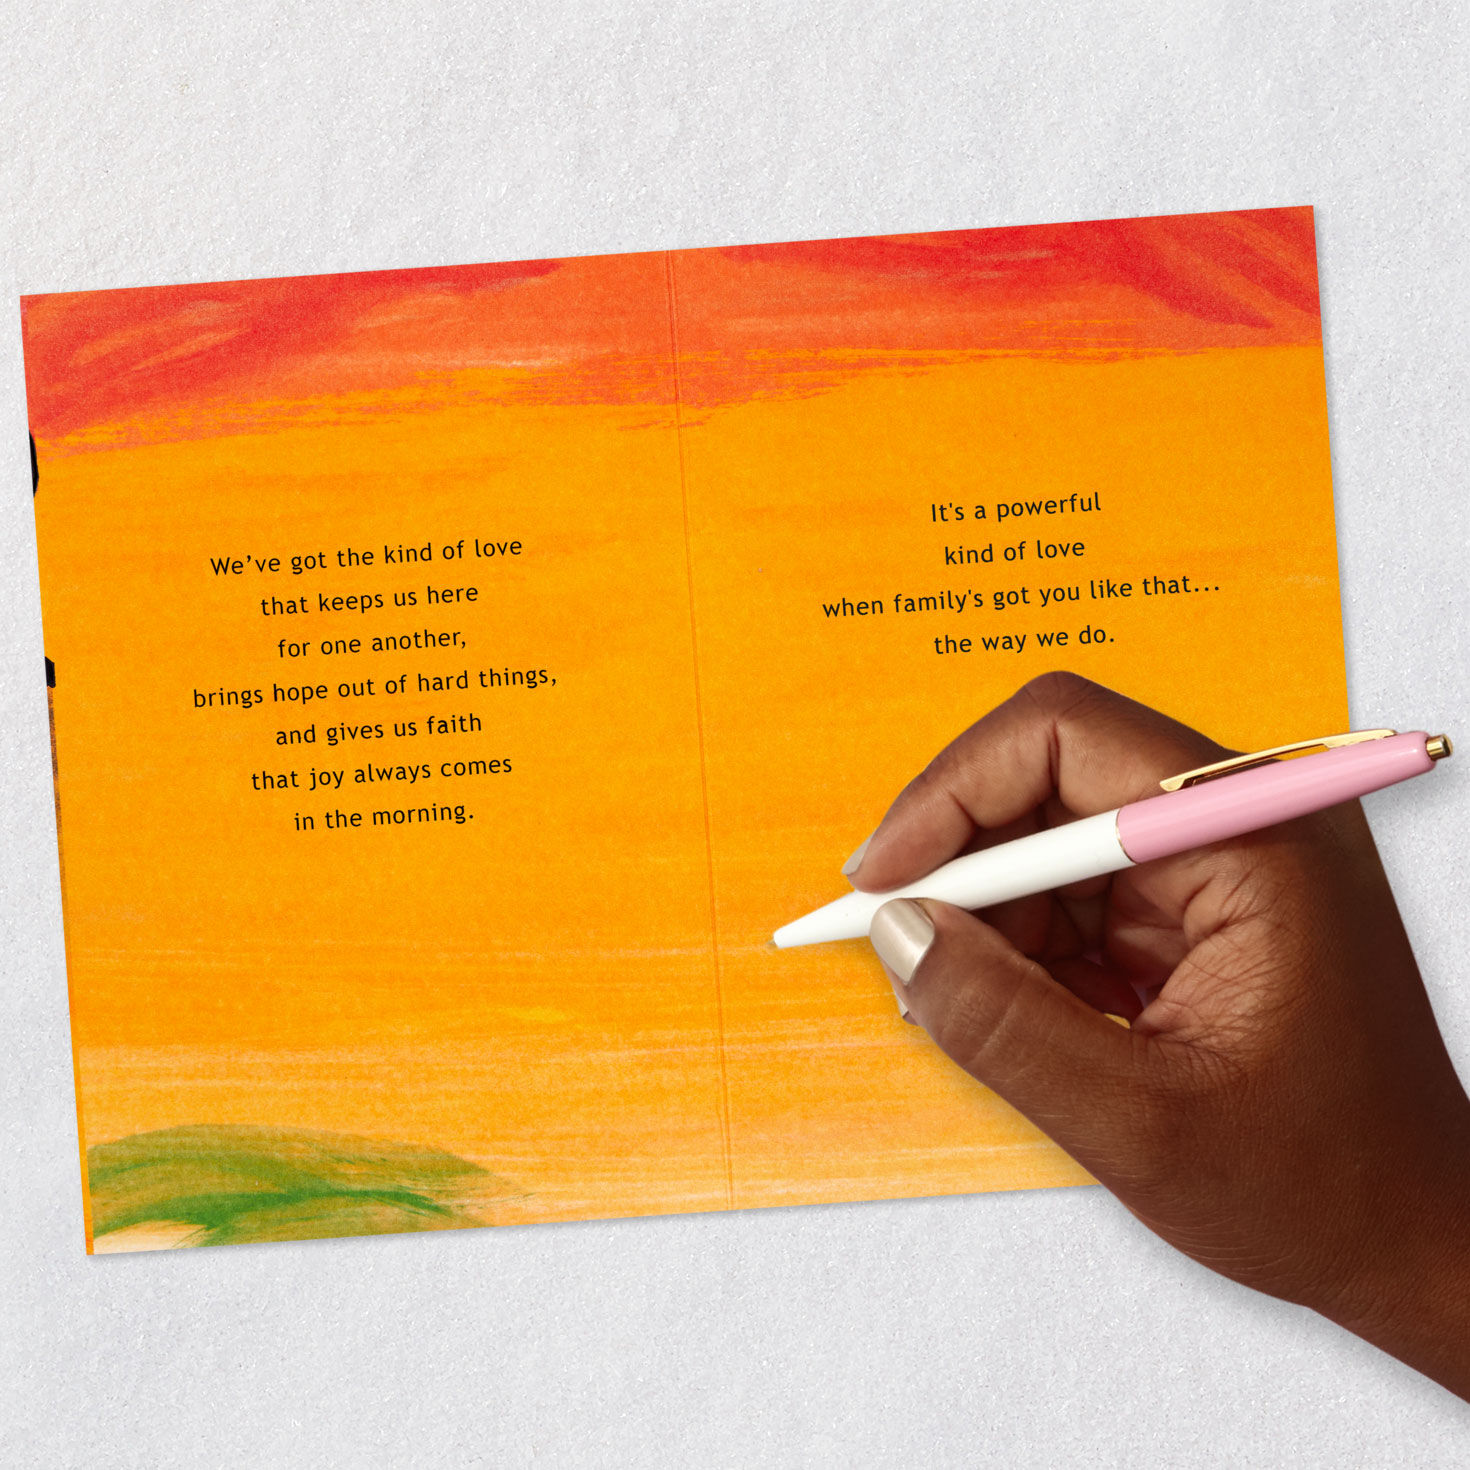 We’ve got the kind of love
that keeps us here
for one another,
brings hope out of hard things,
and gives us faith
that joy always comes
in the morning.
It's a powerful
kind of love
when family's got you like that...
the way we do.